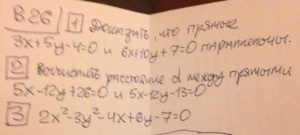 В26 1 Доказать, что прямые
3x+5y-4=0 и 6x+10y+7=0 параллельны.
2 Вычислить расстояние d между прямыми
5x-12y+26=0 и 5x-12y-13=0
3 2x²-3y²-4x+6y-7=0